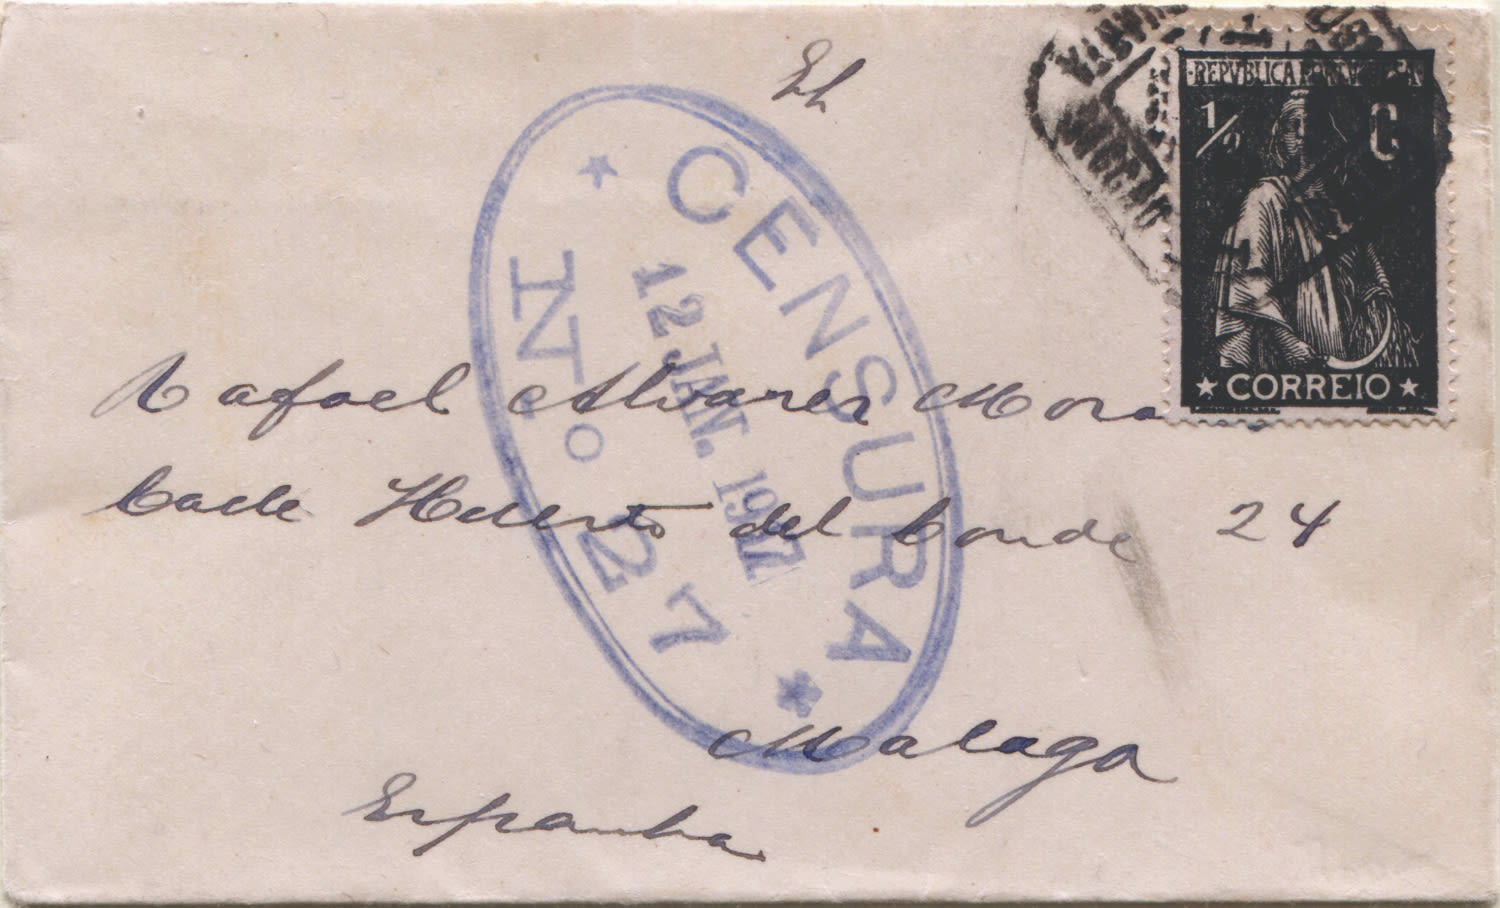 REPVBLICA PORTVGVESA
1/2 C
CORREIO
CENSURA
12 JAN. 1917
N.o 27
Rafael Alvarez Mora
Calle Huerto del Conde 24
Malaga
Espanha